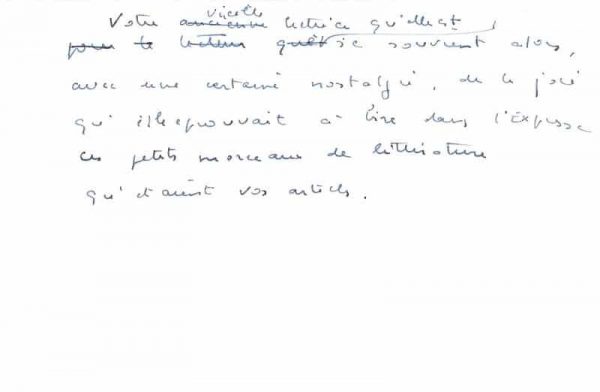 vieille
Votre ancienne lectrice qu'elle est,
pour le lecteur qu'il se souvient alors,
avec une certaine nostalgie, de la joie
qu'elle éprouvait à lire dans l'Express
ces petits morceaux de littérature
qu'étaient vos articles.